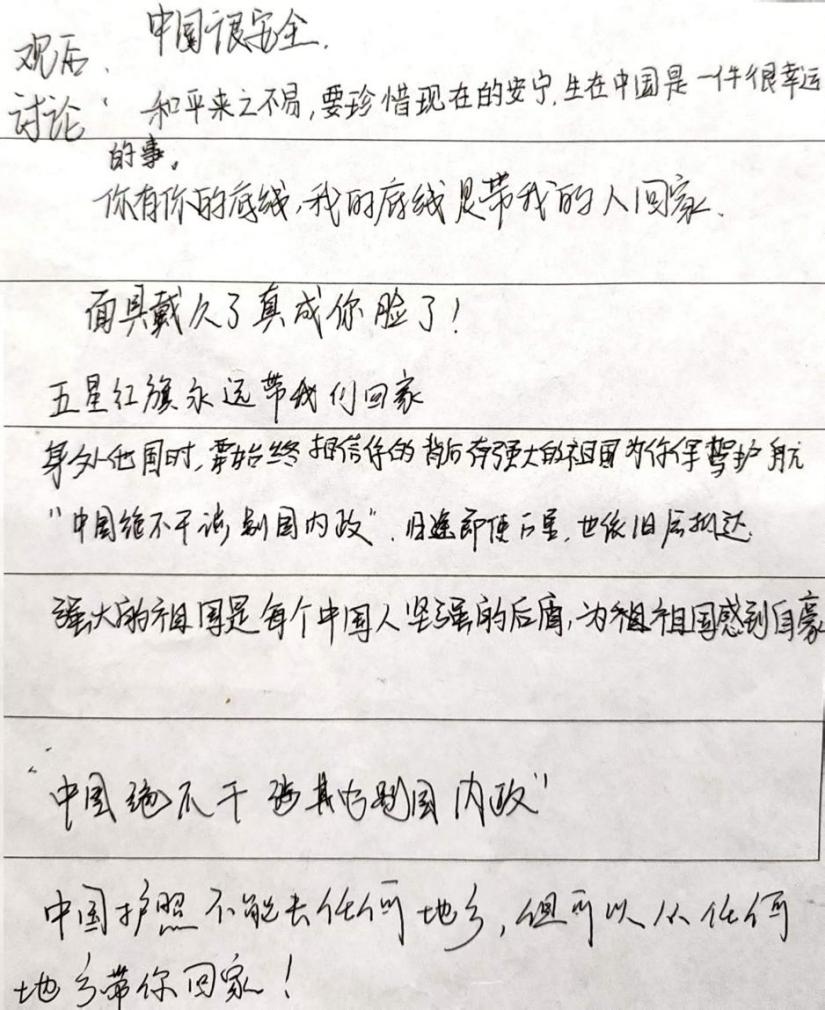 中国很安全.
观后
讨论: 和平来之不易,要珍惜现在的安宁.生在中国是一件很幸运
的事。
你有你的底线,我的底线是带我的人回家.
面具戴久了真成你脸了!
五星红旗永远带我们回家
身处他国时,要始终相信你的背后有强大的祖国为你保驾护航
"中国绝不干涉别国内政". 归途即使万里,也依旧后抵达.
强大的祖国是每个中国人坚强的后盾,为祖祖国感到自豪
"中国绝不干涉其内别国内政"
中国护照不能去任何地方,但可以从任何
地方带你回家!